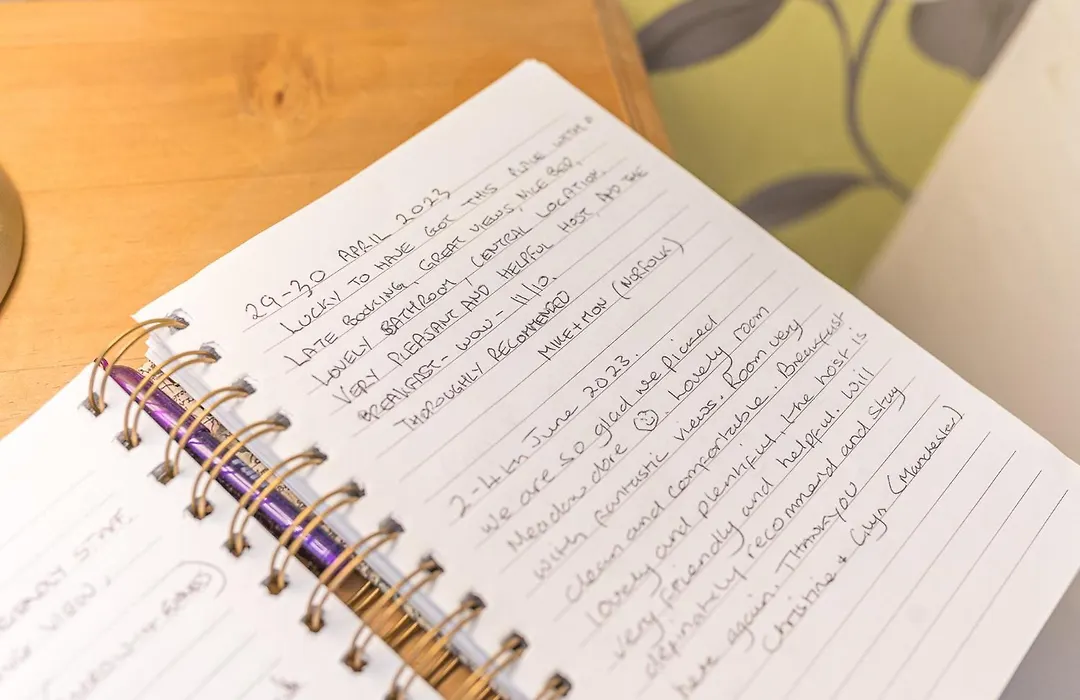 29-30 APRIL 2023
LUCKY TO HAVE GOT THIS PLACE WITH A
LATE BOOKING, GREAT VIEWS, NICE BED,
LOVELY BATHROOM, CENTRAL LOCATION,
VERY PLEASANT AND HELPFUL HOST, AND THE
BREAKFAST - WOW - 11/10.
THOROUGHLY RECOMMENDED
MIKE + MON (NORFOLK)
2-4th June 2023.
We are so glad we picked
Meadowdore ☺. Lovely room
with fantastic views. Room very
clean and comfortable. Breakfast
lovely and plentiful, the host is
very friendly and helpful. Will
definately recommend and stay
here again. Thankyou
Christine + Glyn (Manchester).
STAY.
VIEW,